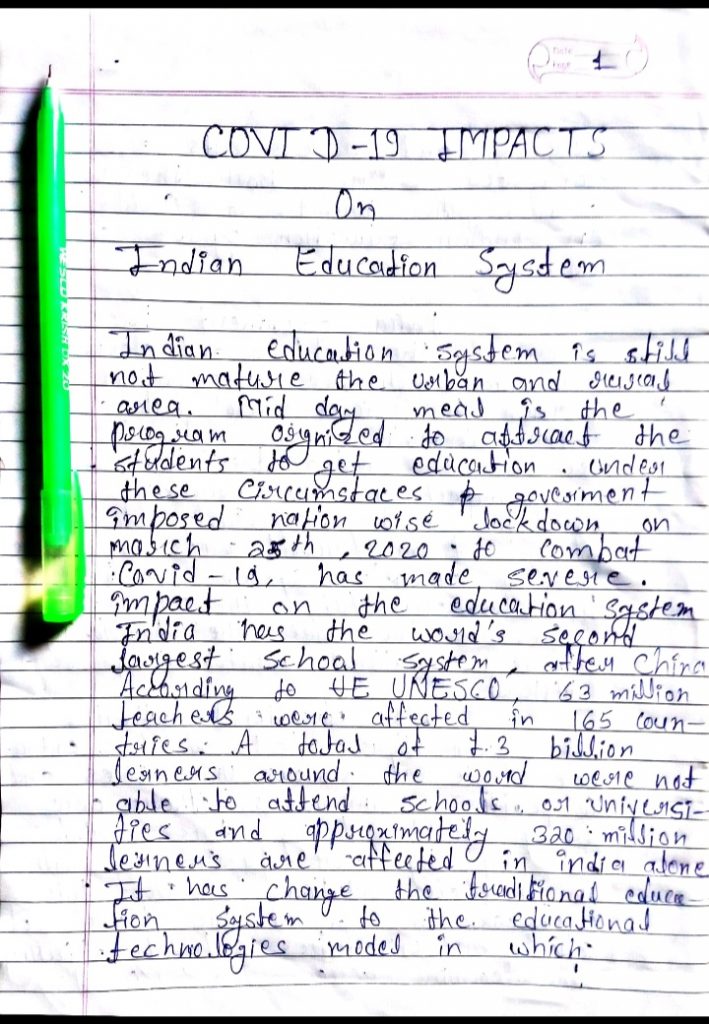 Date
Page 1
COVID-19 IMPACTS
On
Indian Education System
Indian education system is still
not mature the urban and rural
area. Mid day meal is the
program orgnized to attract the
students to get education. under
these Circumstaces goverment
imposed nation wise lockdown on
march 25th, 2020. to combat
Covid-19, has made severe.
impact on the education system
India has the world's second
largest school system, after China
According to UNESCO, 63 million
teachers were affected in 165 coun-
tries. A total of 1.3 billion
lerners around the word were not
able to attend schools. or universi-
ties and approximately 320 million
lerners are affected in india alone
It has change the traditional educa-
tion system to the educational
technologies model in which